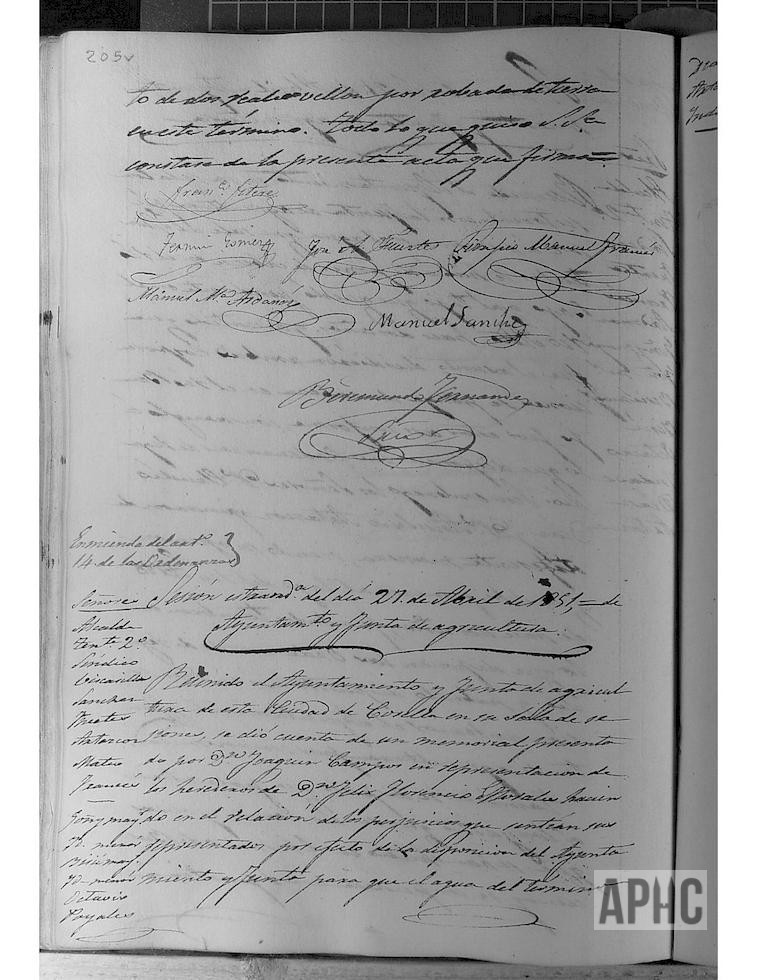 205v
to de dos reales vellon por robada de tierra
en este término. Todo lo que quiso S. Sa
constase de la presente acta que firma=
Franco
Fermin Gomez
Fuertes
Manuel
Manuel Ma
Manuel Sanchez
Beremundo Fernandez
Srio
Enmienda del arto
14 de las Ordenanzas
Sesión estraorda del dia 27 de Abril de 1851,=de
Ayuntamto y Junta de agricultura.
Señores
Alcalde
Tente 2o
Sindico
Sanchez
Fuertes
Mateo
Francés
Octavio
Royales
Reunido el Ayuntamiento y Junta de agricul
tura de esta Ciudad de Corella en su Sala de se
siones, se dió cuenta de un memorial presenta
do por Dn Joaquin Campos en representacion de
los herederos de Dn Felix Florencio hacien
do en el relacion de los perjuicios que sentian sus
representados por efecto de la disposicion del Ayunta
miento y Junta para que el agua del termino
APHC